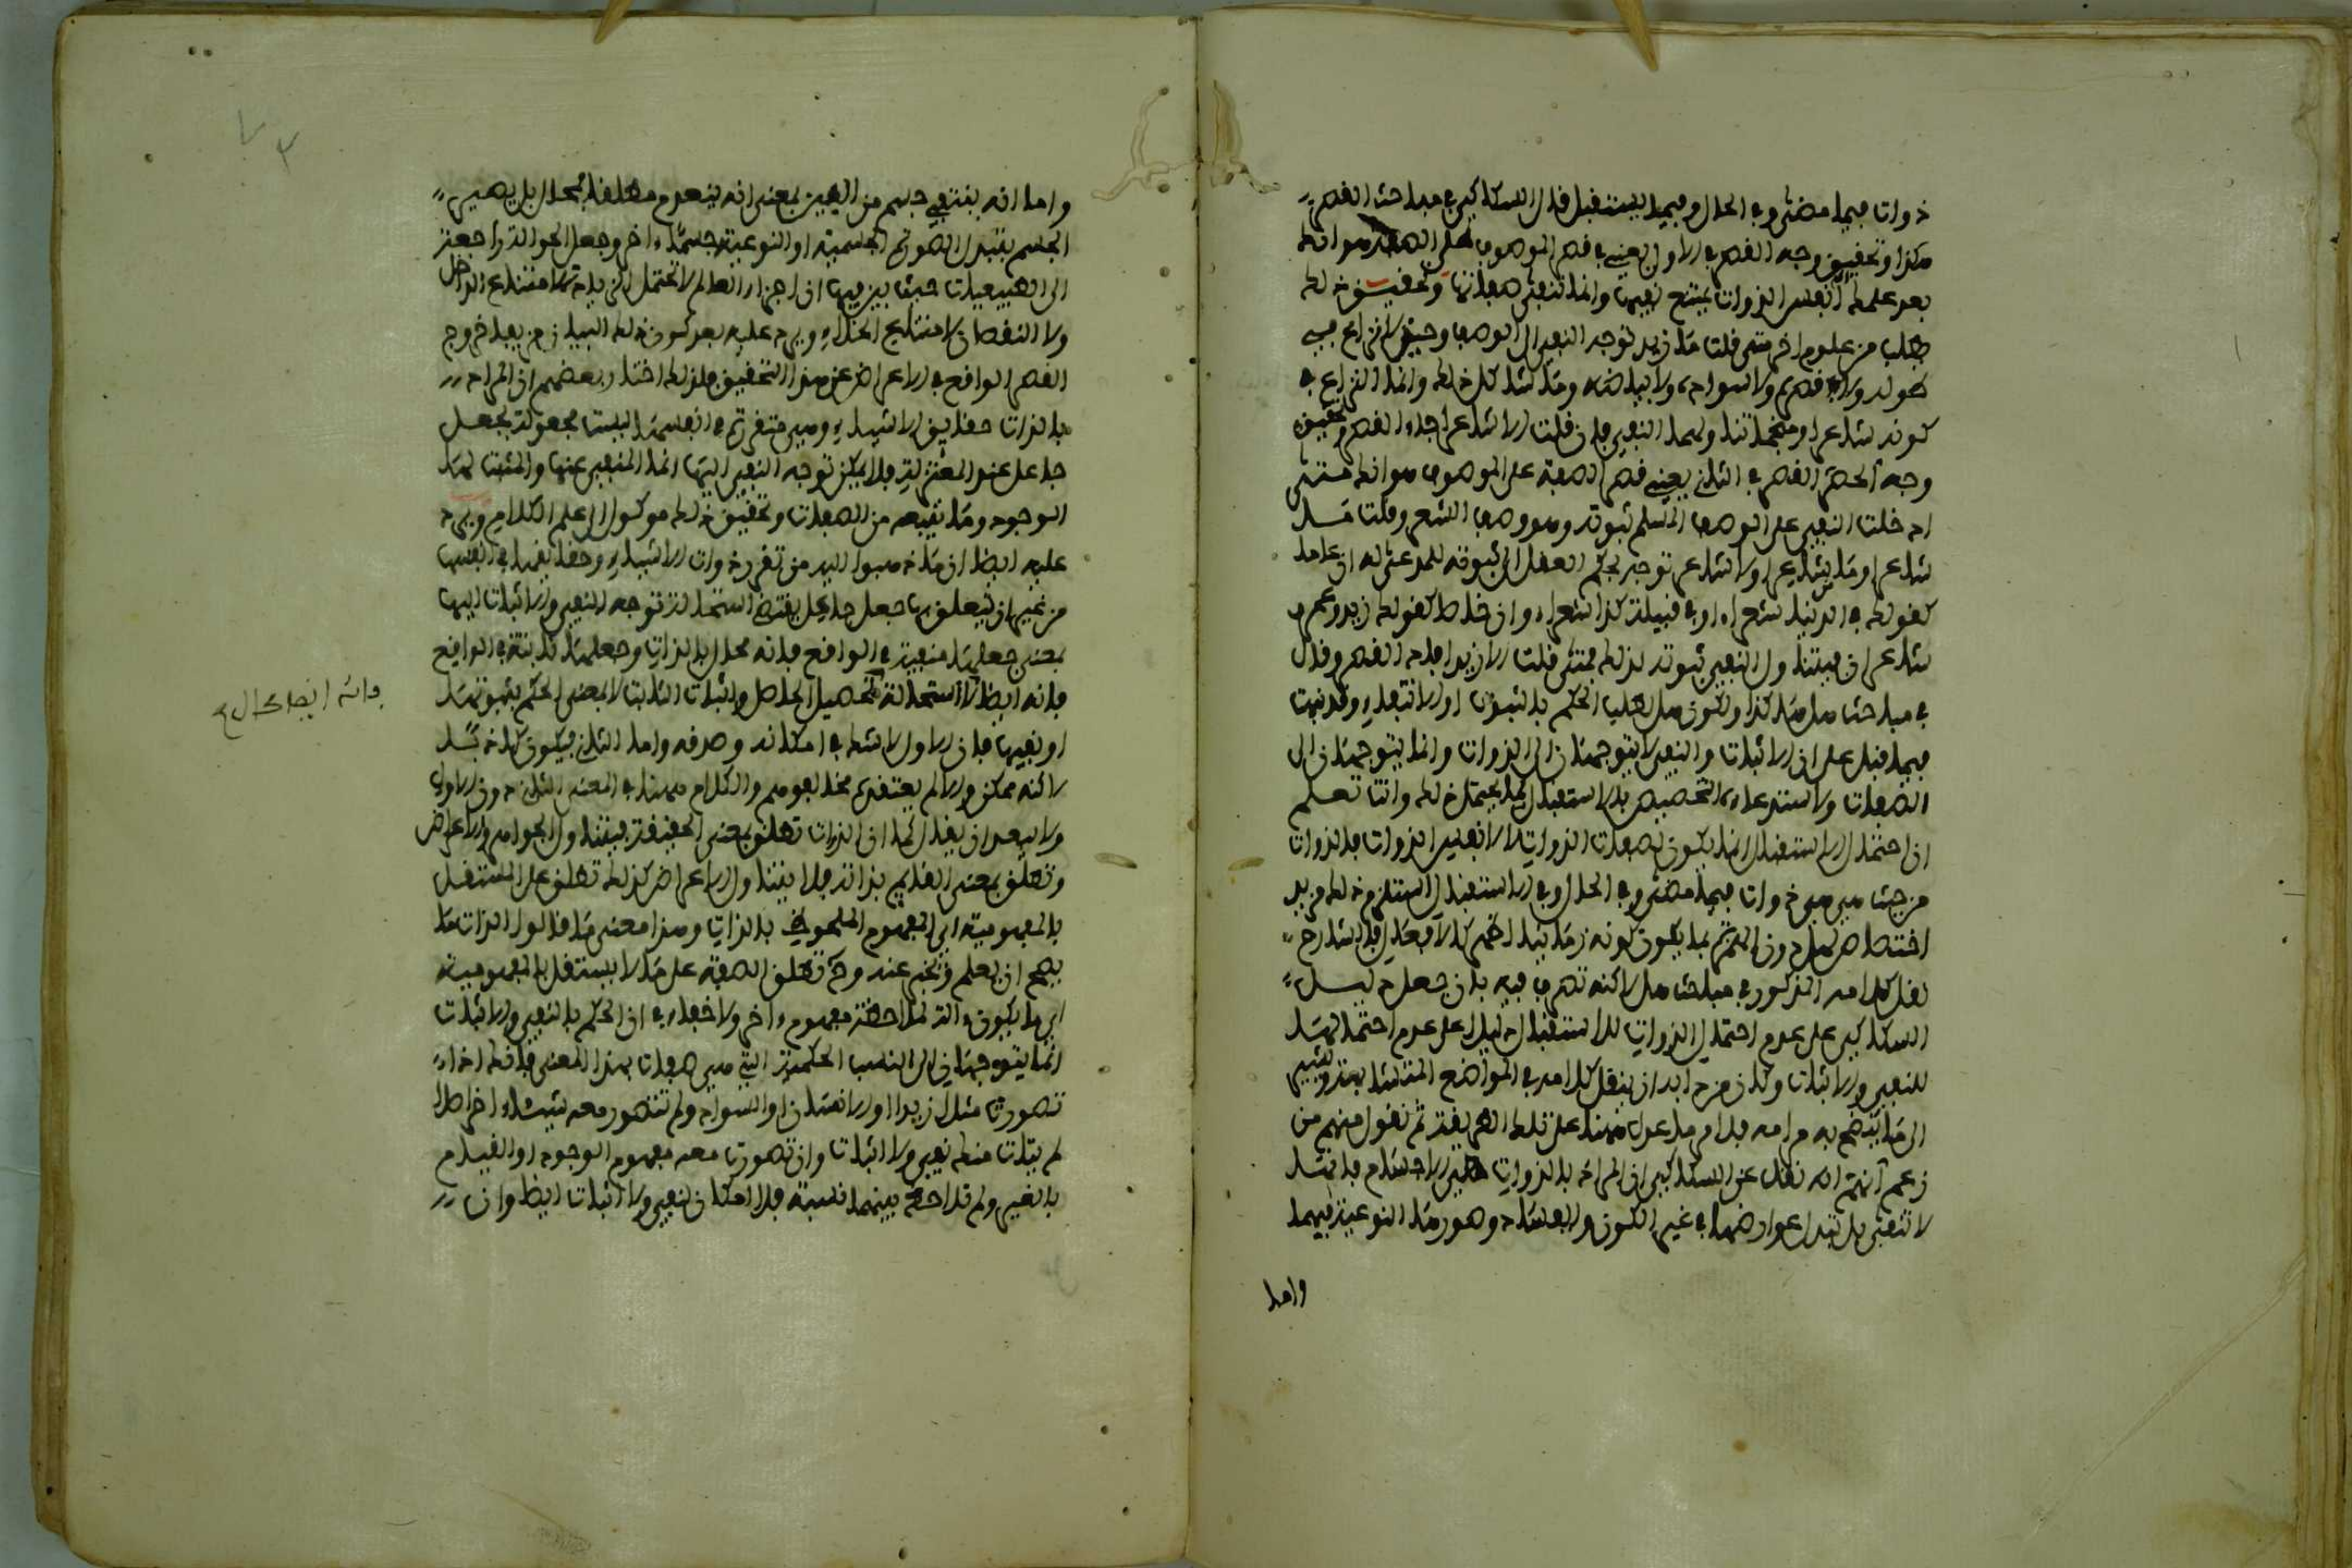 ذوات فيما مضى وفي الحال وفيما يستقبل قال السكاكي في مباحث القصر
هكذا وتحقيق وجه القصر في الاول يعني في قصر الموصوف على الصفة هو انك
بعد علمك ان انفس الذوات يمتنع نفيها وانما تنفى صفاتها وتحقيق ذلك
يطلب من علوم اخر متى قلت ما زيد توجه النفي الى الوصف وحين لا نزاع في
طوله ولا قصره ولا سواده ولا بياضه وما شاكل ذلك وانما النزاع في
كونه شاعرا او منجما تناولهما النفي فاذن قلت الا شاعر جاء القصر وتحقيق
وجه القصر في الثاني يعني قصر الصفة على الموصوف هو انك متى
ادخلت النفي على الوصف المسلم ثبوته وهو وصف الشعر وقلت ما
شاعر او ما من شاعر او لا شاعر توجه بحكم العقل الى ثبوته للمدعى له ان عاما
كقولك في الدنيا شعراء او في قبيلة كذا شعراء وان خاصا كقولك زيد وعمرو
شاعران فيتناول النفي ثبوته لذلك فمتى قلت الا زيد افاد القصر وقال
في مباحث هل هكذا ولكون هل لطلب الحكم بالثبوت او الانتفاء وقد نبهت
فيما قبل على ان الاثبات والنفي لا يتوجهان الى الذوات وانما يتوجهان الى
الصفات ولاستدعائه التخصيص بالاستقبال لما يحتمل ذلك وانت تعلم
ان احتمال الاستقبال انما يكون لصفات الذوات لا لانفس الذوات فالذوات
من حيث هي هي ذوات فيما مضى وفي الحال وفي الاستقبال استلزم ذلك مزيد
اختصاص لهل دون الهمزة بما يكون كونه زمانيا اظهر كالافعال فالشارح
نقل كلامه المذكور في مباحث هل لاكنه تصرف فيه بان جعل دليل
السكاكي على عدم احتمال الذوات للاستقبال دليلا على عدم احتمالها
للنفي والاثبات وكان مراده ان ينقل كلامه في المواضع المتناسبة ويشير
الى ما يتضح به مرامه فلم ما عول هنا على تلك الطريقة ثم نقول منهم من
زعم انهم انه نقل عن السكاكي ان المراد بالذوات هي الاجسام فانها
لا تنفى بل تتبدل عوارضها في غير الكون والفساد وصورها النوعية فيهما
واما
واما انه ينتفي جسم من العين بمعنى انه ينعدم مطلقا فمحال بل يصير
الجسم بتبدل الصورة الجسمية او النوعية جسما اخر وجعل الحوالة راجعة
الى الطبيعيات حيث بين فيها ان اجزاء العالم لا تحتمل الزيادة لامتناع التداخل
ولا النقصان لامتناع الخلاء ويرد عليه بعد كون ذلك البيان مزيفا خروج
القصر الواقع في الاعراض عن هذا التحقيق فلذلك اختار بعضهم ان المراد
بالذات حقايق الاشياء وهي متقررة في انفسها ليست مجعولة بجعل
جاعل عند المعتزلة فلا يمكن توجه النفي اليها انما المنفي عنها والمثبت لها
الوجود وما يتبعه من الصفات وتحقيق ذلك موكول الى علم الكلام ويرد
عليه ايضا ان ما ذهبوا اليه من تقرر ذوات الاشياء وحقايقها في انفسها
من غير ان يتعلق بها جعل جاعل يقتضي استحالة توجه النفي والاثبات اليها
بمعنى جعلها منفية في الواقع فانه محال بالذات وجعلها ثابتة في الواقع
فانه ايضا لاستحالة تحصيل الحاصل واثبات الثابت لا بمعنى الحكم بثبوتها
او نفيها فان الاول لا شك في امكانه وصدقه واما الثاني فيكون كاذبا
لاكنه ممكن والا لم يعتقده مخالفوهم والكلام ههنا في المعنى الثاني دون الاول
ولا يبعد ان يقال كما ان الذات تطلق بمعنى الحقيقة فيتناول الجواهر والاعراض
وتطلق بمعنى القايم بذاته فلا يتناول الاعراض كذلك تطلق على المستقل
بالمفهومية اي المفهوم الملحوظ بالذات وهذا معنى ما قالوا الذات ما
يصح ان يعلم ويخبر عنه وح تطلق الصفة على ما لا يستقل بالمفهومية
اي ما يكون الة لملاحظة مفهوم اخر ولا خفاء في ان الحكم بالنفي والاثبات
انما يتوجهان الى النسب الحكمية التي هي صفات بهذا المعنى فانك اذا
تصورت مثلا زيدا او الانسان او السواد ولم تتصور معه شيئا اخر اصلا
لم يتات منك نفي ولا اثبات وان تصورت معه مفهوم الوجود او القيام
بالغير ولم تلاحظ بينهما نسبة فلا امكان لنفي ولا اثبات ايضا وان
فانه ايضا محال
٧٢